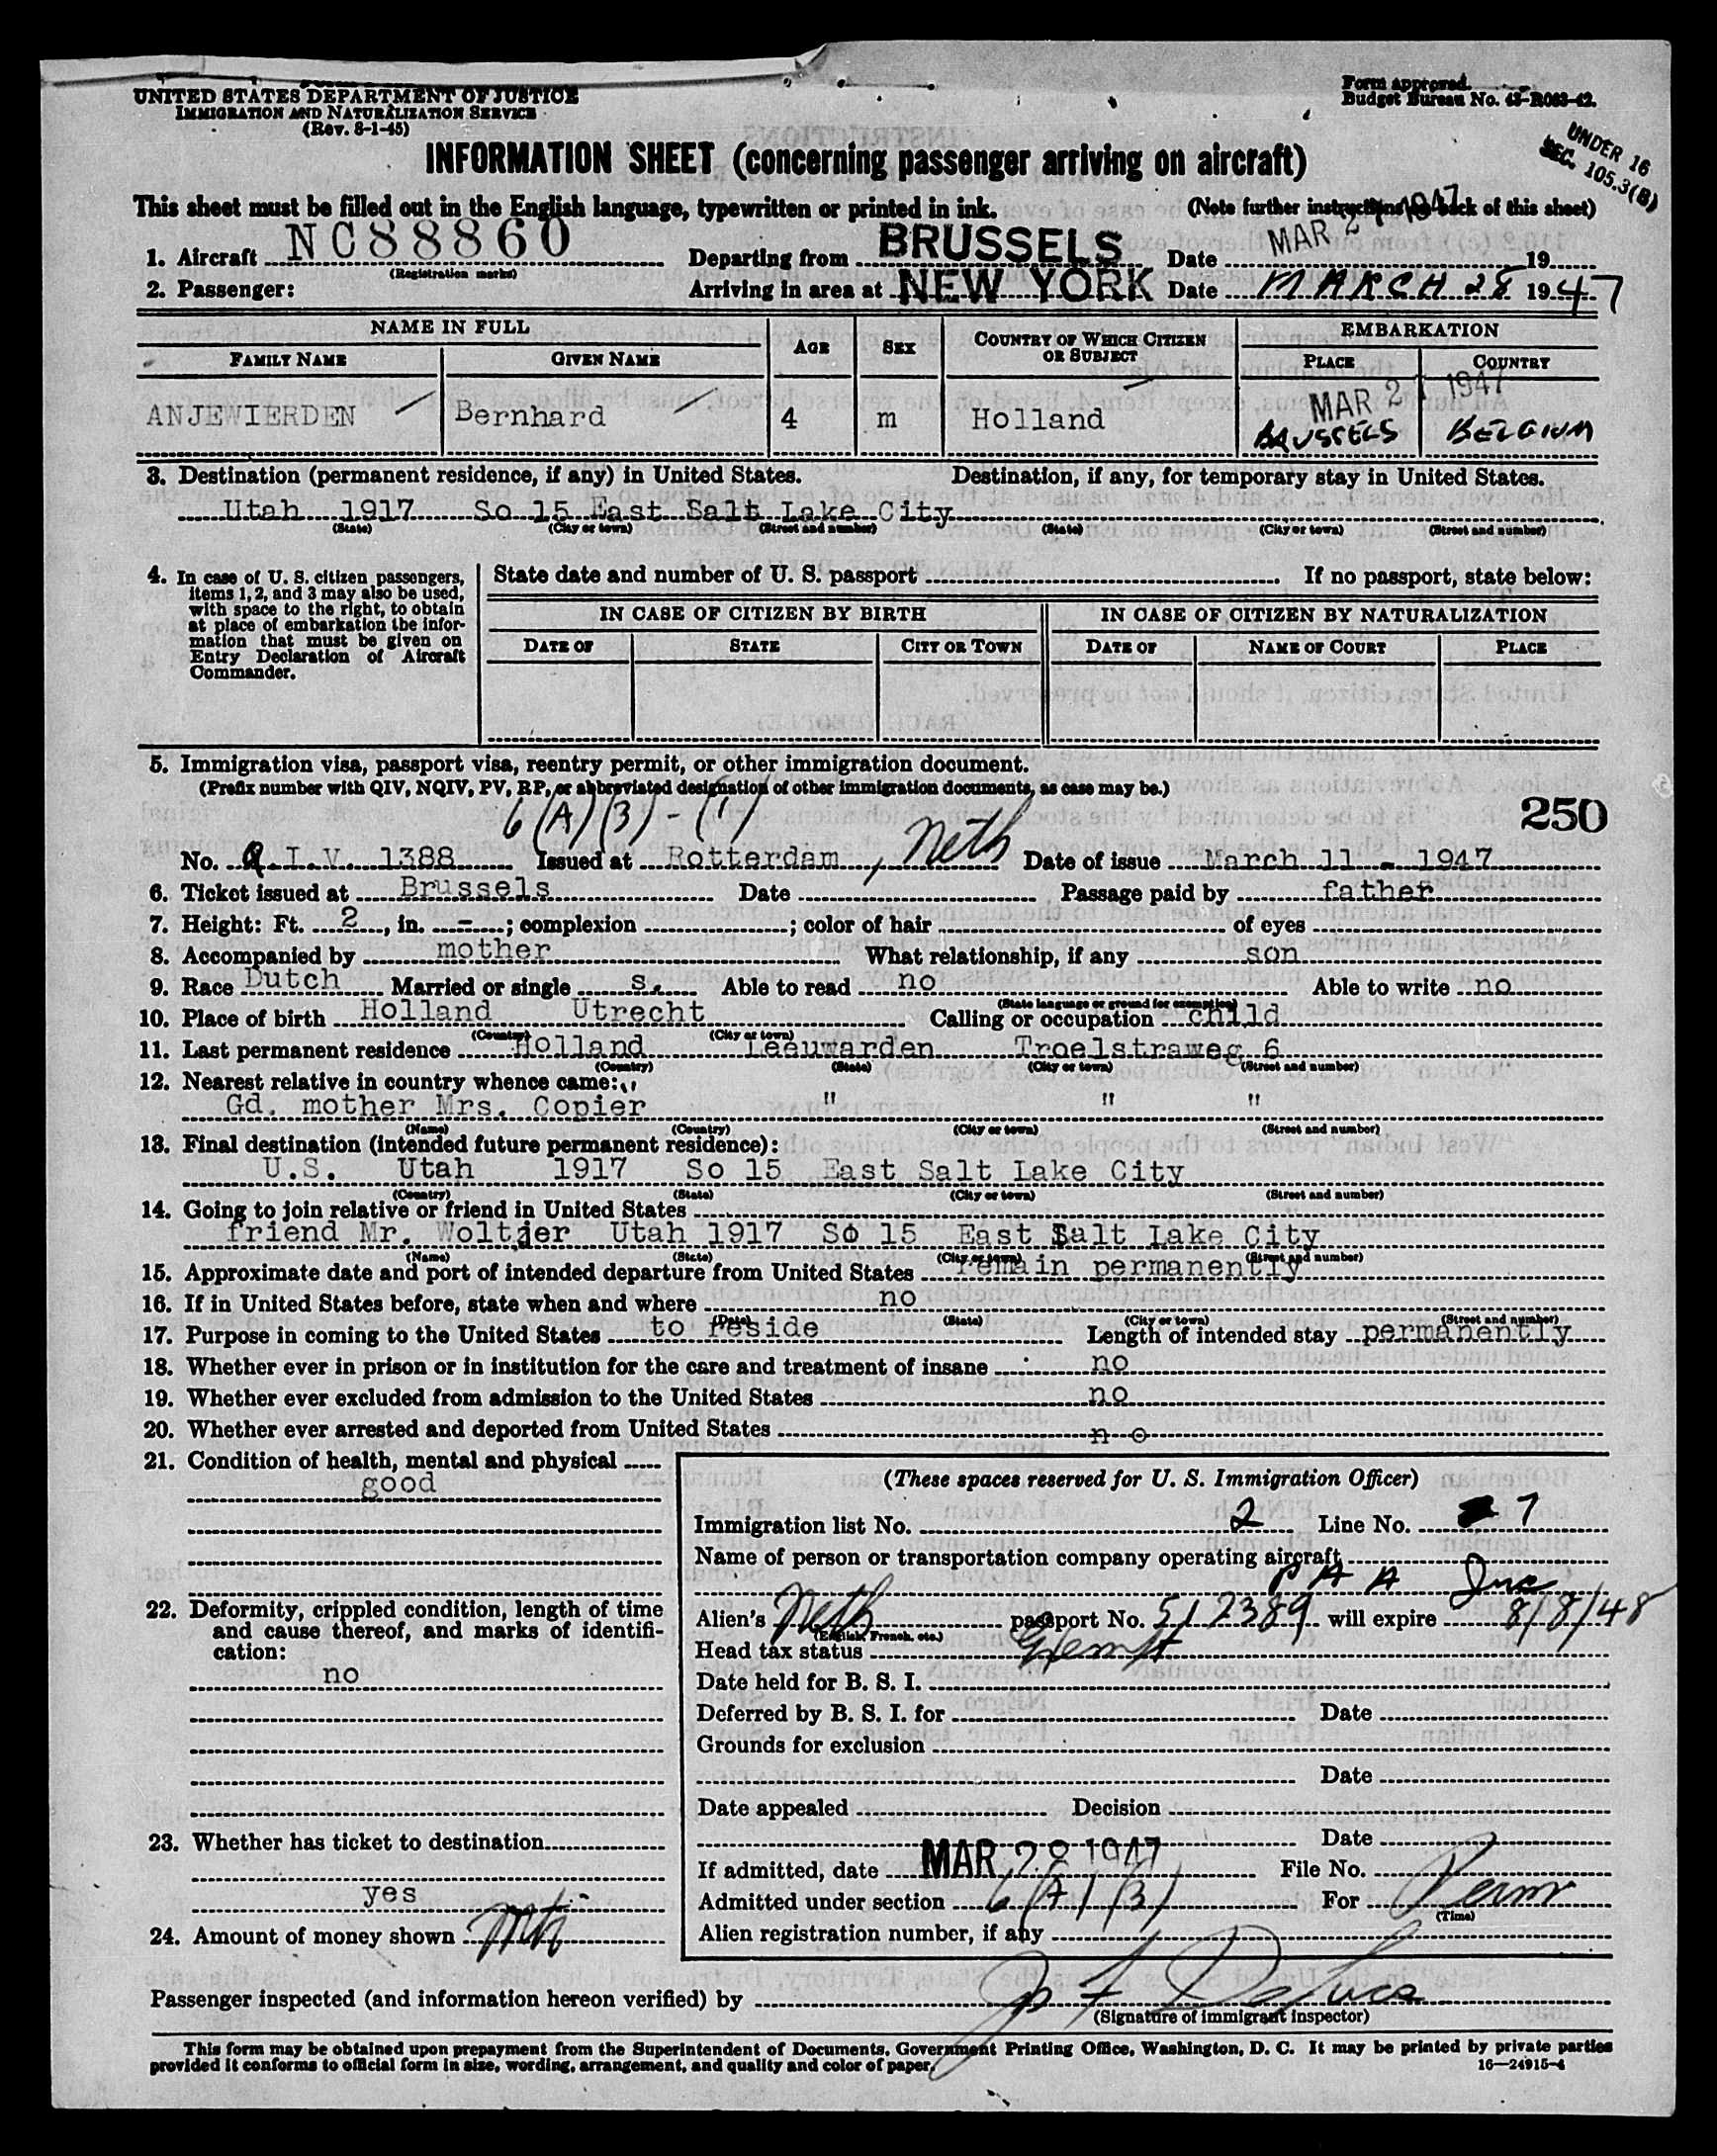 UNITED STATES DEPARTMENT OF JUSTICE
IMMIGRATION AND NATURALIZATION SERVICE
(Rev. 8-1-45)
Form approved.
Budget Bureau No. 43-R083-42.
UNDER 16
SEC. 105.3(B)
INFORMATION SHEET (concerning passenger arriving on aircraft)
This sheet must be filled out in the English language, typewritten or printed in ink. (Note further instructions on back of this sheet)
1. Aircraft NC88860 Departing from BRUSSELS Date MAR 27 1947 19
(Registration marks)
2. Passenger: Arriving in area at NEW YORK Date MARCH 28 1947
NAME IN FULL AGE SEX COUNTRY OF WHICH CITIZEN OR SUBJECT EMBARKATION
FAMILY NAME GIVEN NAME PLACE COUNTRY
MAR 27 1947
ANJEWIERDEN Bernhard 4 m Holland BRUSSELS BELGIUM
3. Destination (permanent residence, if any) in United States. Destination, if any, for temporary stay in United States.
Utah 1917 So 15 East Salt Lake City
(State) (City or town) (Street and number) (State) (City or town) (Street and number)
4. In case of U. S. citizen passengers, items 1, 2, and 3 may also be used, with space to the right, to obtain at place of embarkation the information that must be given on Entry Declaration of Aircraft Commander.
State date and number of U. S. passport If no passport, state below:
IN CASE OF CITIZEN BY BIRTH IN CASE OF CITIZEN BY NATURALIZATION
DATE OF STATE CITY OR TOWN DATE OF NAME OF COURT PLACE
5. Immigration visa, passport visa, reentry permit, or other immigration document.
(Prefix number with QIV, NQIV, PV, RP, or abbreviated designation of other immigration documents, as case may be.)
6(A)(3)-(1) 250
No. Q.I.V. 1388 Issued at Rotterdam, Neth Date of issue March 11 - 1947
6. Ticket issued at Brussels Date Passage paid by father
7. Height: Ft. 2, in. -; complexion ; color of hair of eyes
8. Accompanied by mother What relationship, if any son
9. Race Dutch Married or single s. Able to read no Able to write no
(State language or ground for exemption)
10. Place of birth Holland Utrecht Calling or occupation child
(Country) (City or town)
11. Last permanent residence Holland Leeuwarden Troelstraweg 6
(Country) (State) (City or town) (Street and number)
12. Nearest relative in country whence came:
Gd. mother Mrs. Copier " " "
(Name) (Country) (City or town) (Street and number)
13. Final destination (intended future permanent residence):
U.S. Utah 1917 So 15 East Salt Lake City
(Country) (State) (City or town) (Street and number)
14. Going to join relative or friend in United States
friend Mr. Woltjer Utah 1917 So 15 East Salt Lake City
(Name) (State) (City or town) (Street and number)
15. Approximate date and port of intended departure from United States remain permanently
16. If in United States before, state when and where no
(Date) (State) (City or town) (Street and number)
17. Purpose in coming to the United States to reside Length of intended stay permanently
18. Whether ever in prison or in institution for the care and treatment of insane no
19. Whether ever excluded from admission to the United States no
20. Whether ever arrested and deported from United States no
21. Condition of health, mental and physical
good
22. Deformity, crippled condition, length of time and cause thereof, and marks of identification:
no
23. Whether has ticket to destination
yes
24. Amount of money shown
(These spaces reserved for U. S. Immigration Officer)
Immigration list No. 2 Line No. 7
Name of person or transportation company operating aircraft
P A A Inc
Alien's Neth passport No. 512389 will expire 8/8/48
(English, French, etc.)
Head tax status Exempt
Date held for B. S. I.
Deferred by B. S. I. for Date
Grounds for exclusion
Date
Date appealed Decision
Date
If admitted, date MAR 28 1947 File No.
Admitted under section 6(A)(3) For Perm
(Time)
Alien registration number, if any
Passenger inspected (and information hereon verified) by
(Signature of immigrant inspector)
This form may be obtained upon prepayment from the Superintendent of Documents, Government Printing Office, Washington, D. C. It may be printed by private parties
provided it conforms to official form in size, wording, arrangement, and quality and color of paper. 16—24915-4